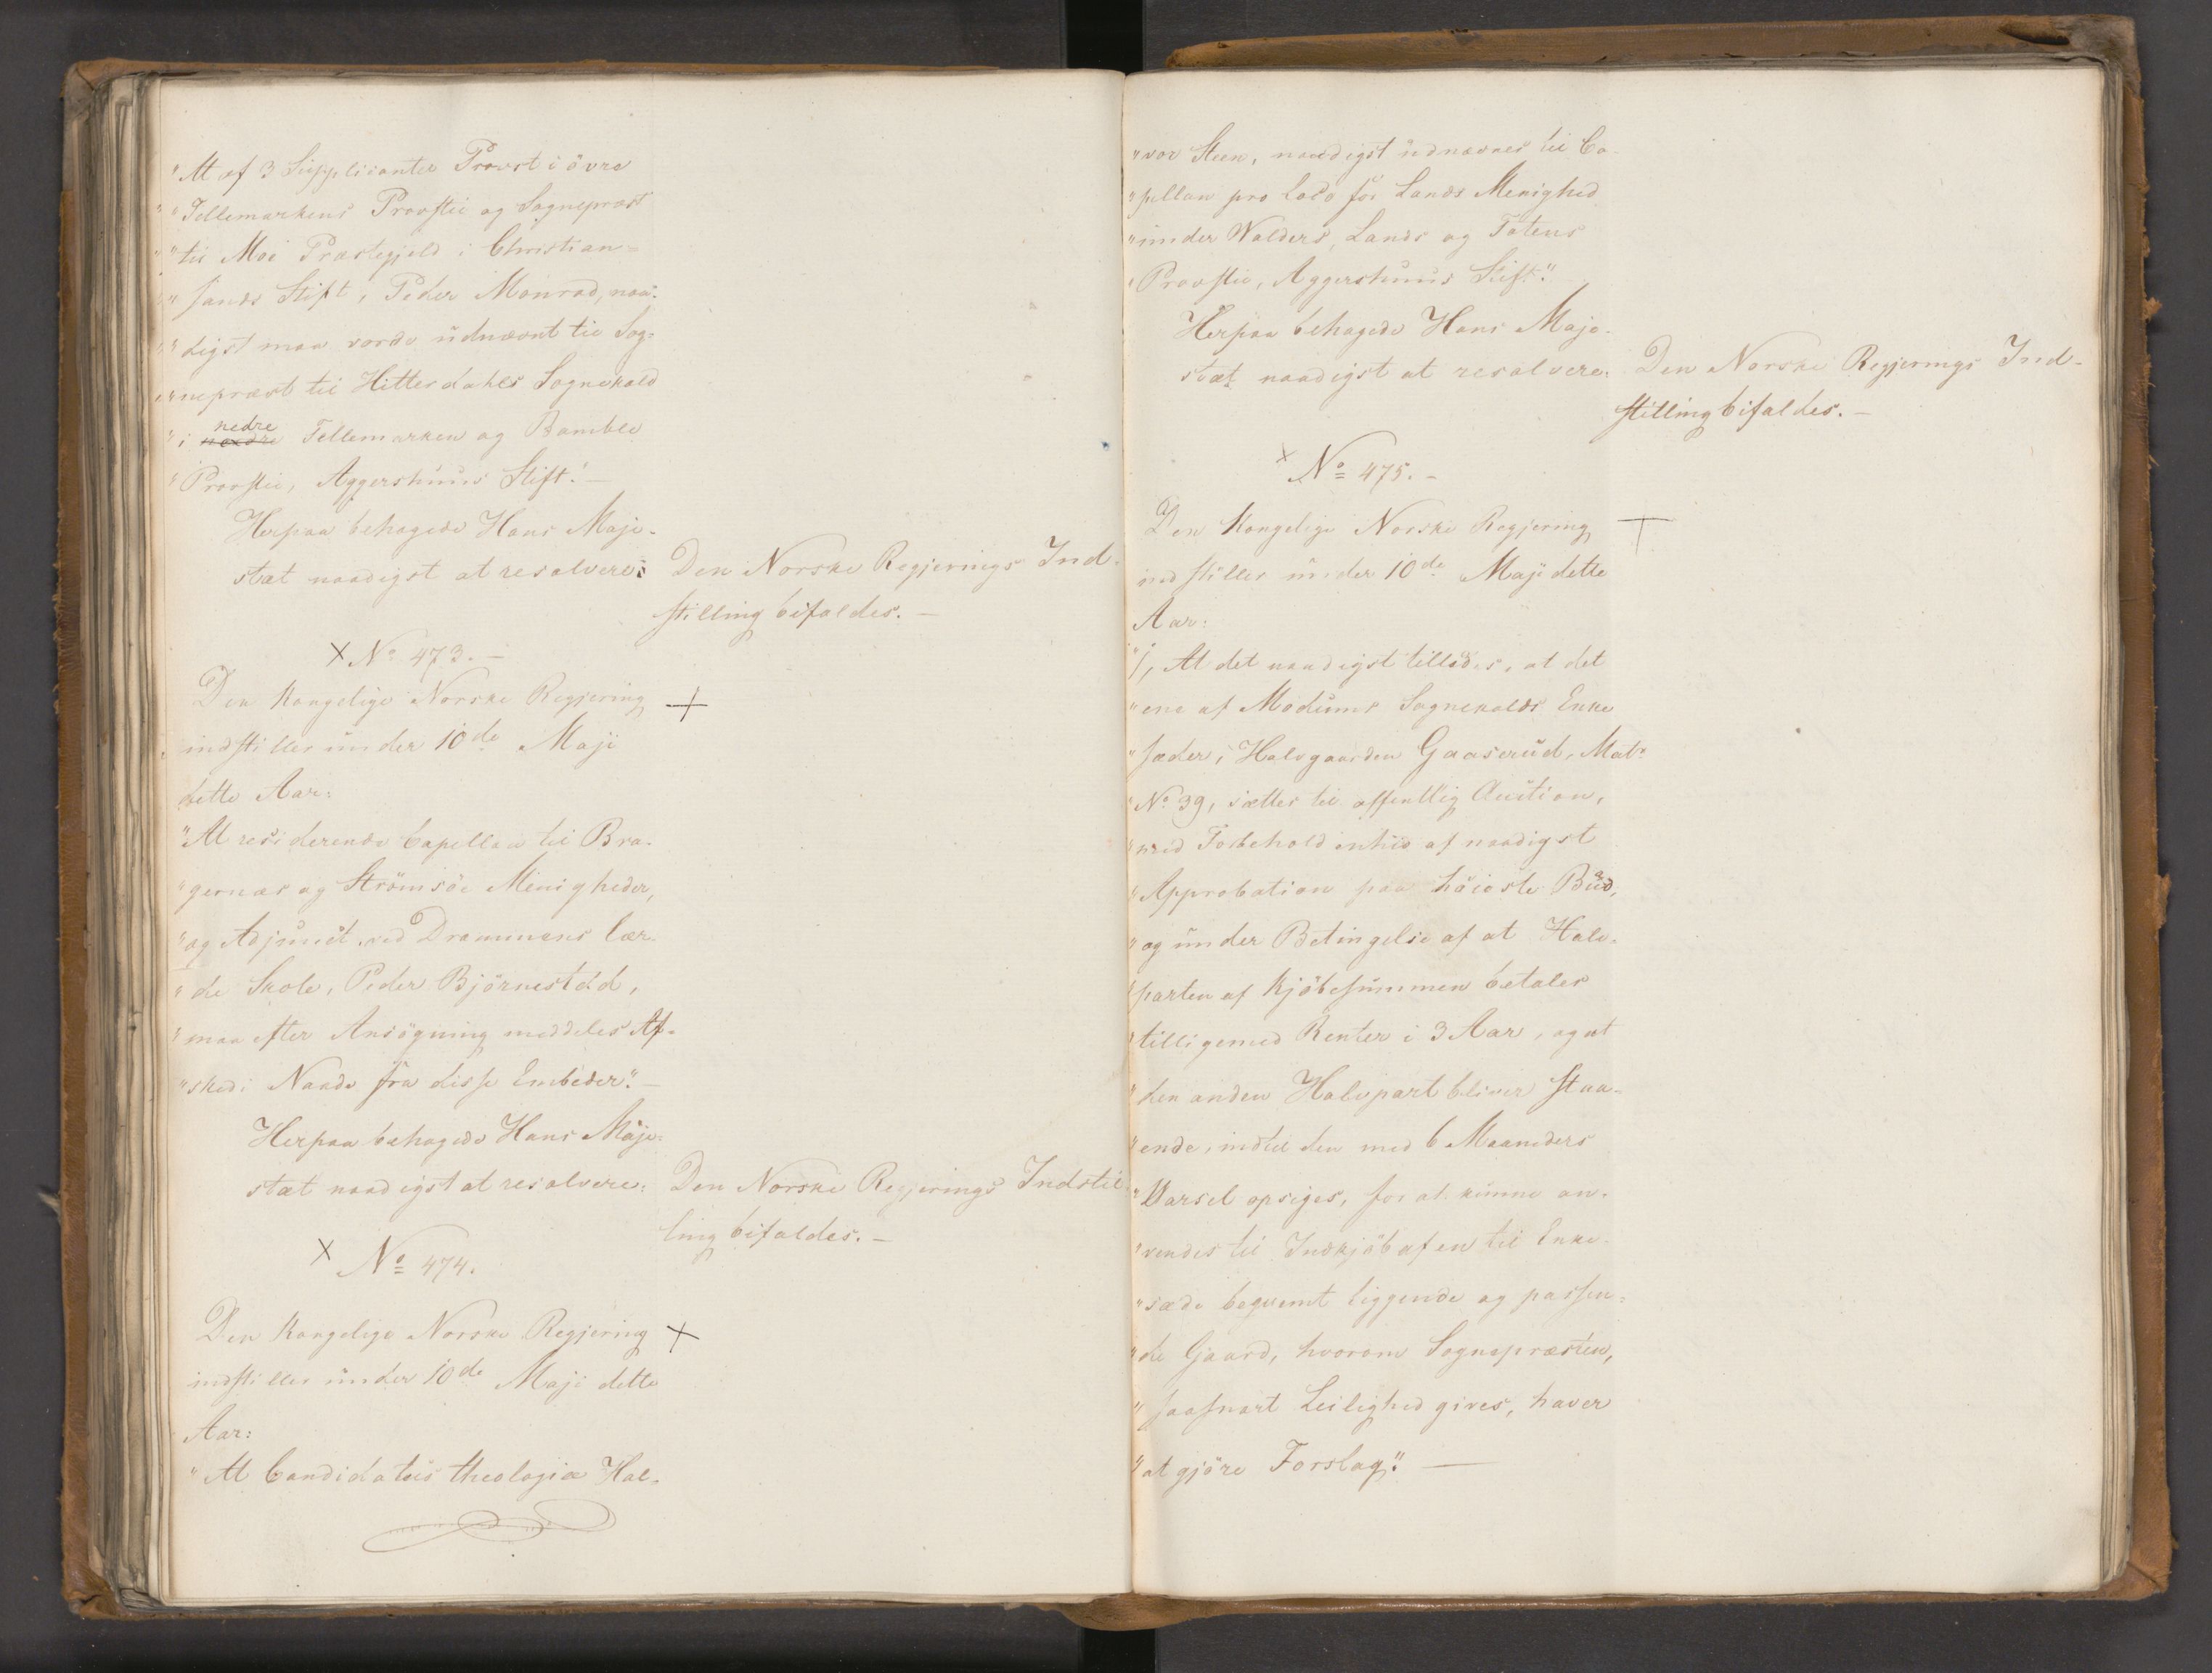 "At af 3 Supplicanter Provst i övre
"Tellemarkens Provstie og Sognepræst
"til Moe Præstegjeld i Christian=
"sands Stift, Peder Monrad, naa=
"digst maa vorde udnævnt til Sog=
"nepræst til Hitterdahls Sognekald
"i nordre nedre Tellemarken og Bamble
"Provstie, Aggershuus Stift."—
Herpaa behagede Hans Maje-
stæt naadigst at resolvere: Den Norske Regjerings Ind-
stilling bifaldes.—
× No 473.—
Den Kongelige Norske Regjering +
indstiller under 10de Maji
dette Aar:
"At residerende Capellan til Bra-
"gernæs og Strömsöe Menigheder,
"og Adjunct ved Drammens lær-
"de Skole, Peder Björnestad,
"maa efter Ansögning meddeles Af-
"sked i Naade fra disse Embeder."—
Herpaa behagede Hans Maje-
stæt naadigst at resolvere: Den Norske Regjerings Indstil-
ling bifaldes.—
× No 474.
Den Kongelige Norske Regjering +
indstiller under 10de Maji dette
Aar:
"At Candidatus theologiæ Hal-
"vor Steen, naadigst udnævnes til Ca-
"pellan pro loco for Lands Menighed
"under Walders, Lands og Totens
"Provstie, Aggershuus Stift."
Herpaa behagede Hans Maje-
stæt naadigst at resolvere: Den Norske Regjerings Ind-
stilling bifaldes.—
× No 475.-
Den Kongelige Norske Regjering +
indstiller under 10de Maji dette
Aar:
"1, At det naadigst tillades, at det
"ene af Modums Sognekalds Enke
"sæder, Halvgaarden Gaaserud, Matr
"No 39, sættes til offentlig Auction,
"med Forbehold enhver af naadigst
"Approbation paa höieste Bud,
"og under Betingelse af at Halv-
"parten af Kjöbesummen betales
"tilligemed Renter i 3 Aar, og at
"den anden Halvpart bliver staa-
"ende, indtil den med 6 Maaneders
"Varsel opsiges, for at kunne an-
"vendes til Indkjöb af en til Enke-
"sæde beqvemt liggende og passen-
"de Gaard, hvorom Sognepræsten,
"saasnart Leilighed gives, haver
"at gjöre Forslag."—